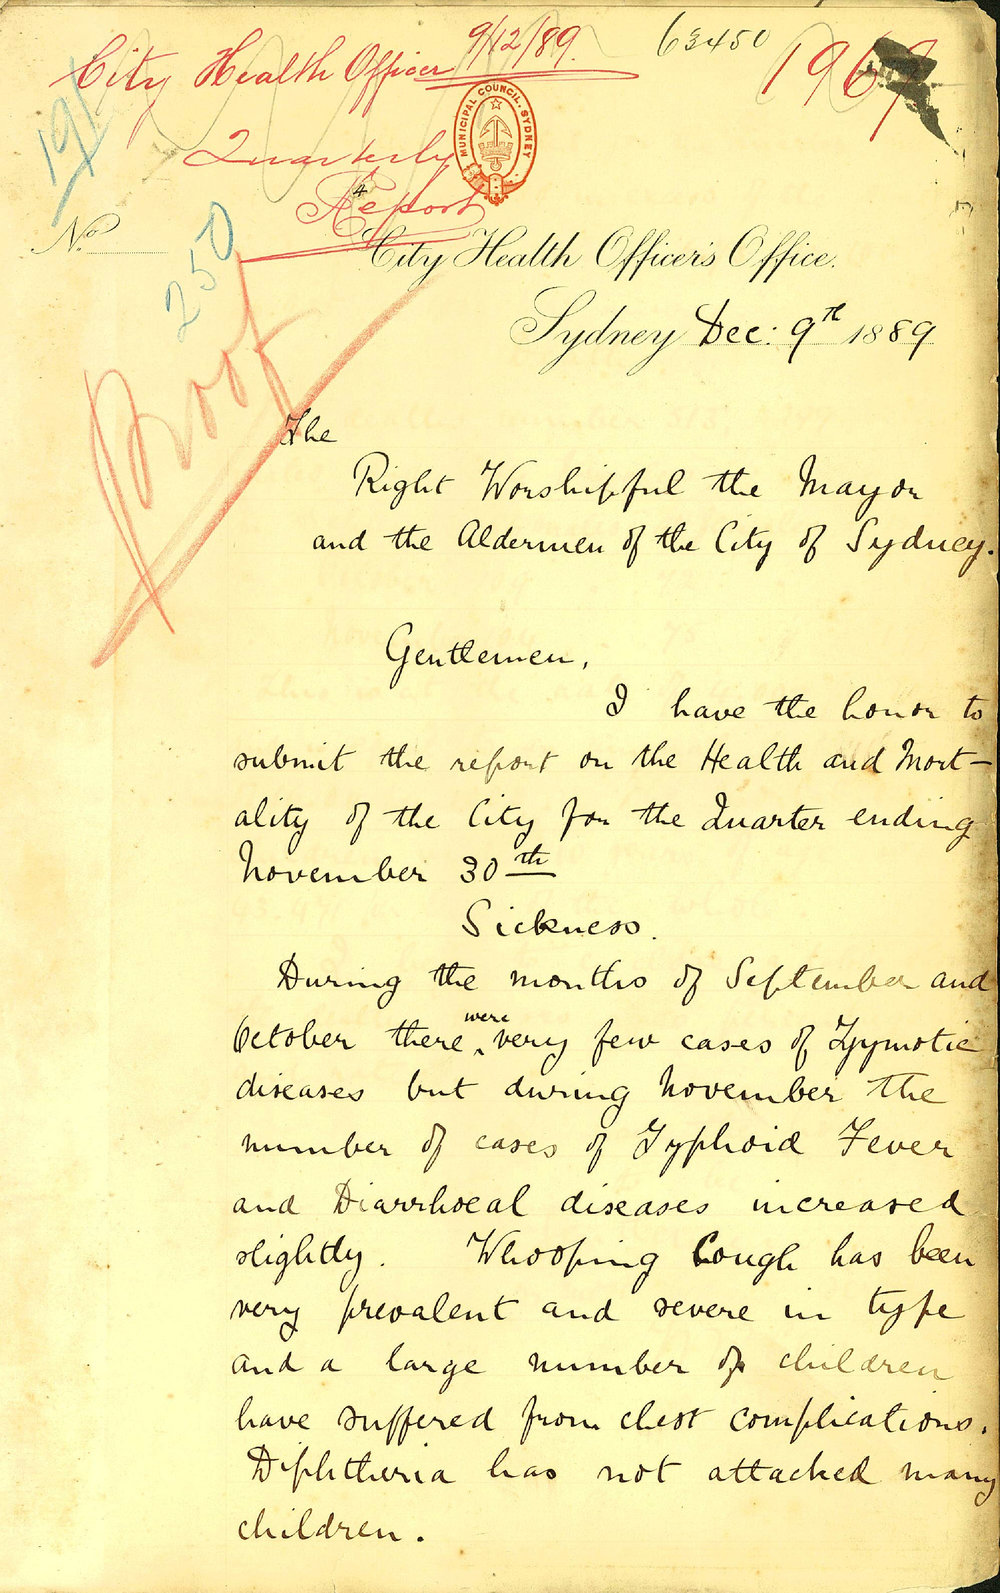 City Health Officer 9/12/89.
63450
1969
Quarterly
Report
4
MUNICIPAL COUNCIL. SYDNEY
191
No.
250
Proof
City Health Officer's Office.
Sydney Dec: 9th 1889
The
Right Worshipful the Mayor
and the Aldermen of the City of Sydney.
Gentlemen,
I have the honor to
submit the report on the Health and Mort-
ality of the City for the Quarter ending
November 30th
Sickness.
During the months of September and
October there were very few cases of Zymotic
diseases but during November the
number of cases of Typhoid Fever
and Diarrhoeal diseases increased
slightly. Whooping Cough has been
very prevalent and severe in type
and a large number of children
have suffered from chest complications.
Diphtheria has not attacked many
children.